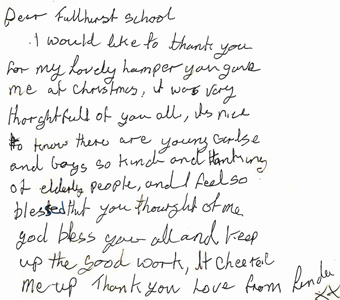 Dear Fullhurst school
I would like to thank you
For my lovely hamper you gave
me at Christmas, it was very
thorghtfull of you all, its nice
to know there are young
and boys so kind and thinking
of elderly people, and I feel so
blessed that you thought of me
god bless you all and keep
up the good work, It cheered
me up Thank you Love from Linda
xx